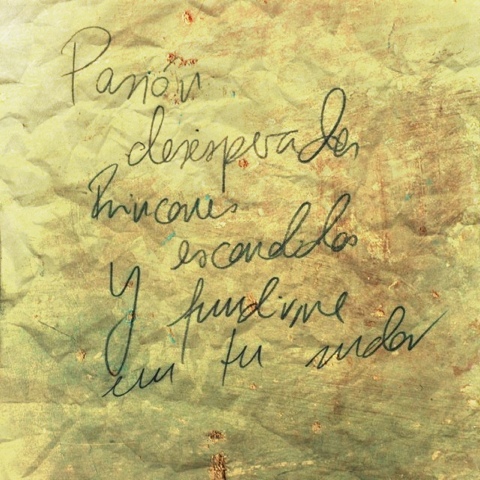 Pasión
desesperada
Rincones
escondidos
Y fundirme
en tu sudor